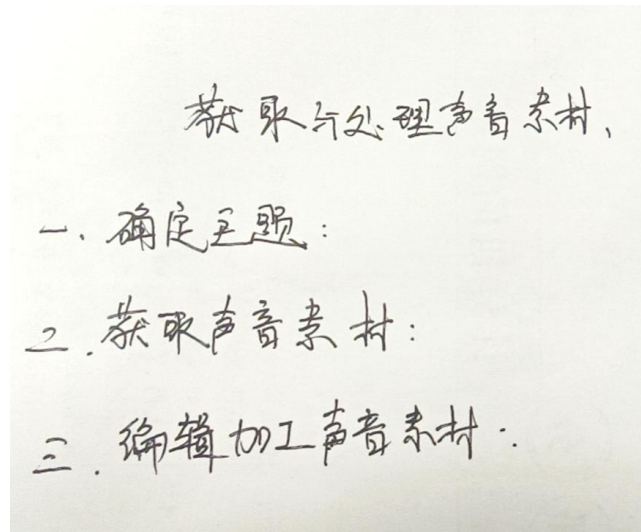 获取与处理声音素材、
一、确定主题：
二、获取声音素材：
三、编辑加工声音素材.